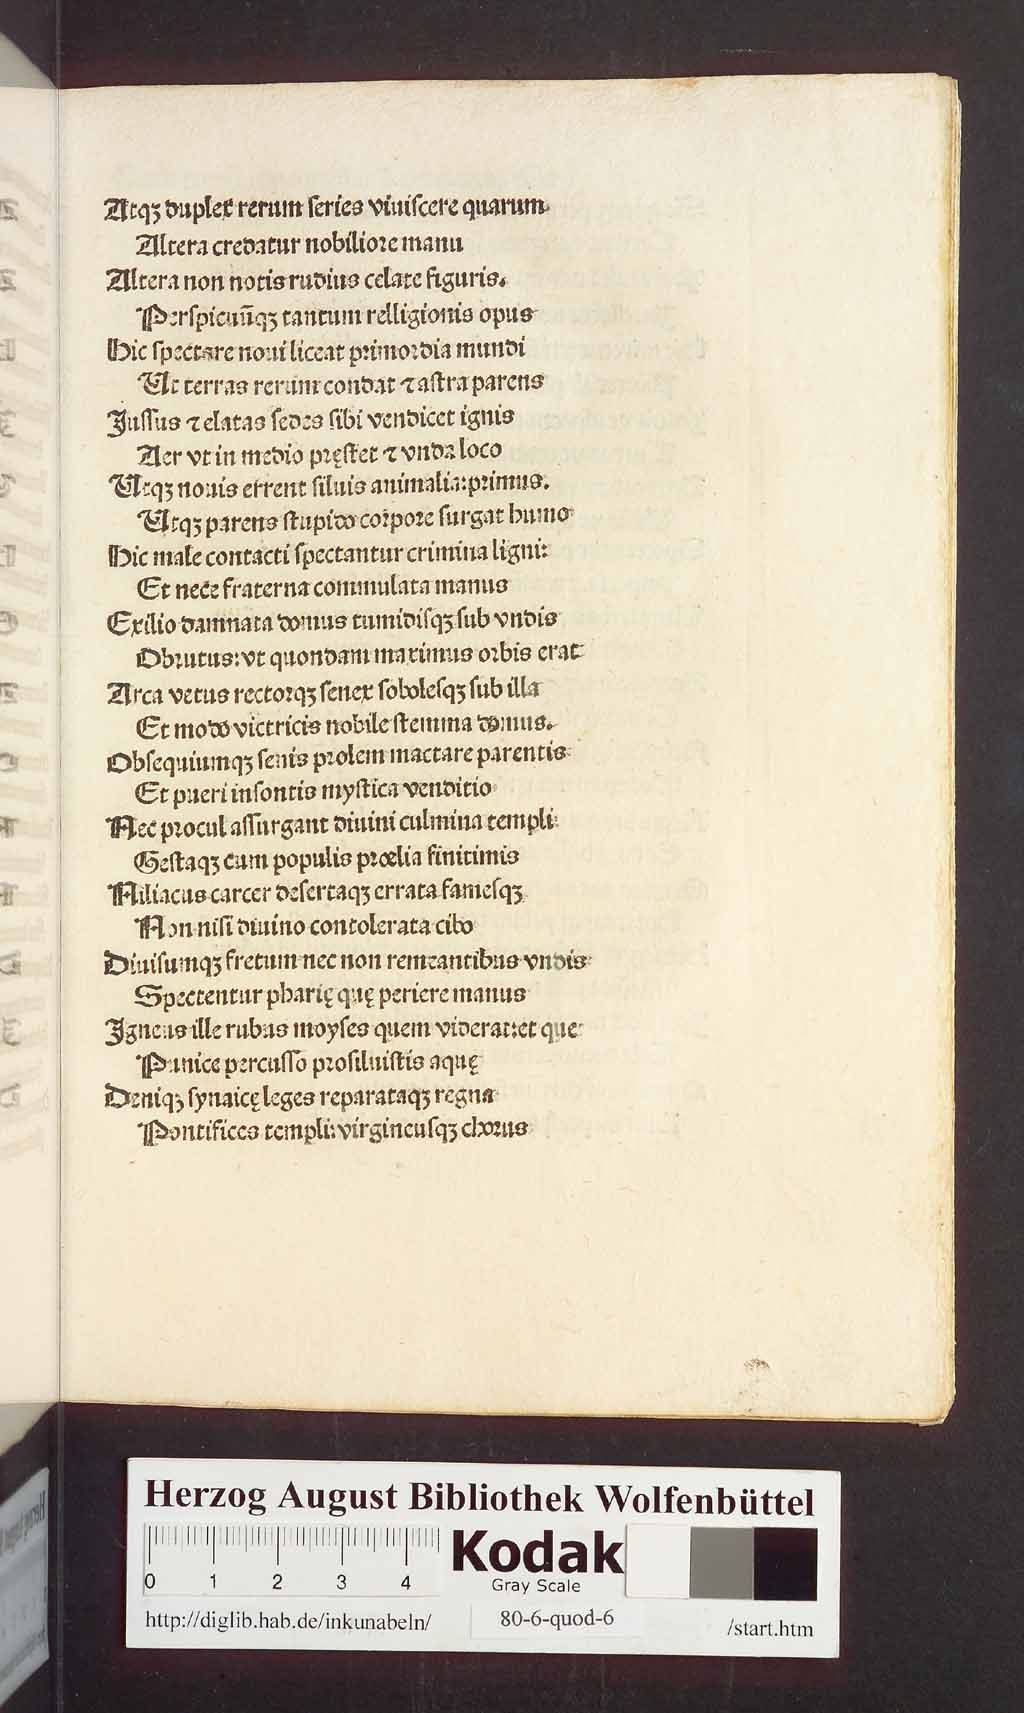 Atqꝫ duplex rerum series viuiscere quarum
Altera credatur nobiliore manu
Altera non notis rudius celate figuris.
Perspicuūqꝫ tantum relligionis opus
Hic spectare noui liceat primordia mundi
Ut terras rerum condat ⁊ astra parens
Jussus ⁊ elatas sedes sibi vendicet ignis
Aer vt in medio pręstet ⁊ vnda loco
Utqꝫ nouis errent siluis animalia: primus.
Utqꝫ parens stupido corpore surgat humo
Hic male contacti spectantur crimina ligni:
Et nece fraterna commulata manus
Exilio damnata domus tumidisqꝫ sub vndis
Obrutus: vt quondam maximus orbis erat
Arca vetus rectorqꝫ senex sobolesqꝫ sub illa
Et modo victricis nobile stemma domus.
Obsequiumqꝫ senis prolem mactare parentis
Et pueri insontis mystica venditio
Nec procul assurgant diuini culmina templi:
Gestaqꝫ cum populis prœlia finitimis
Niliacus carcer desertaqꝫ errata famesqꝫ
Non nisi diuino contolerata cibo
Diuisumqꝫ fretum nec non remeantibus vndis
Spectentur pharię quę periere manus
Igneus ille rubus moyses quem viderat: et que
Punice percusso prosiluistis aquę
Deniqꝫ synaicę leges reparataqꝫ regna
Pontifices templi: virgineusqꝫ chorus
Herzog August Bibliothek Wolfenbüttel
Kodak
Gray Scale
0 1 2 3 4
http://diglib.hab.de/inkunabeln/
80-6-quod-6
/start.htm